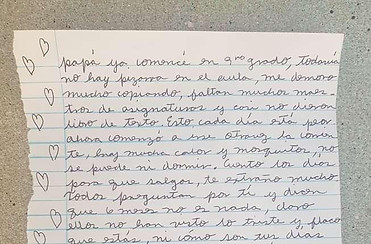 papá ya comencé en 9no grado, todavía
no hay pizarra en el aula, me demoro
mucho copiando, faltan muchos maes-
tros de asignaturas y casi no dieron
libro de texto. Esto, cada día está peor
ahora comenzó a irse otravez la corrien-
te, hay mucha calor y mosquitos, no
se puede ni dormir. Cuento los días
para que salgas, te extraño mucho
todos preguntan por ti y dicen
que 6 meses no es nada, claro
ellos no han visto lo triste y flaco
que estas, ni cómo son tus días